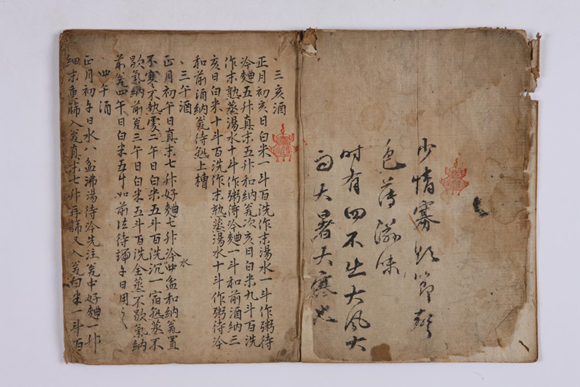 少情寡欲節聲
色薄滋味
時有四不出大風大
雨大暑大寒也
、三亥酒
正月初亥日白米一斗百洗作末湯水一斗作粥待
冷麯五升真末五升和納瓮次亥日白米九斗百洗
作末熟蒸湯水十斗作粥待冷麯一斗和前酒納三
亥日白米十斗百洗作末熟蒸湯水十斗作粥待冷
和前酒納瓮待熟上槽
、三午酒
正月初午日真末七升好麯七升冷水盆和納瓮置
不寒不熱處二午日白米五斗百洗沉一宿熟蒸不
歇氣納前瓮三午日白米五斗百洗全蒸不歇氣納
前瓮四午日白米五斗如前法待端午日用之
、四午酒
正月初午日水八盆沸湯待冷先注瓮中好麯一升
細末重篩入瓮真末七升再篩又入瓮白米一斗百